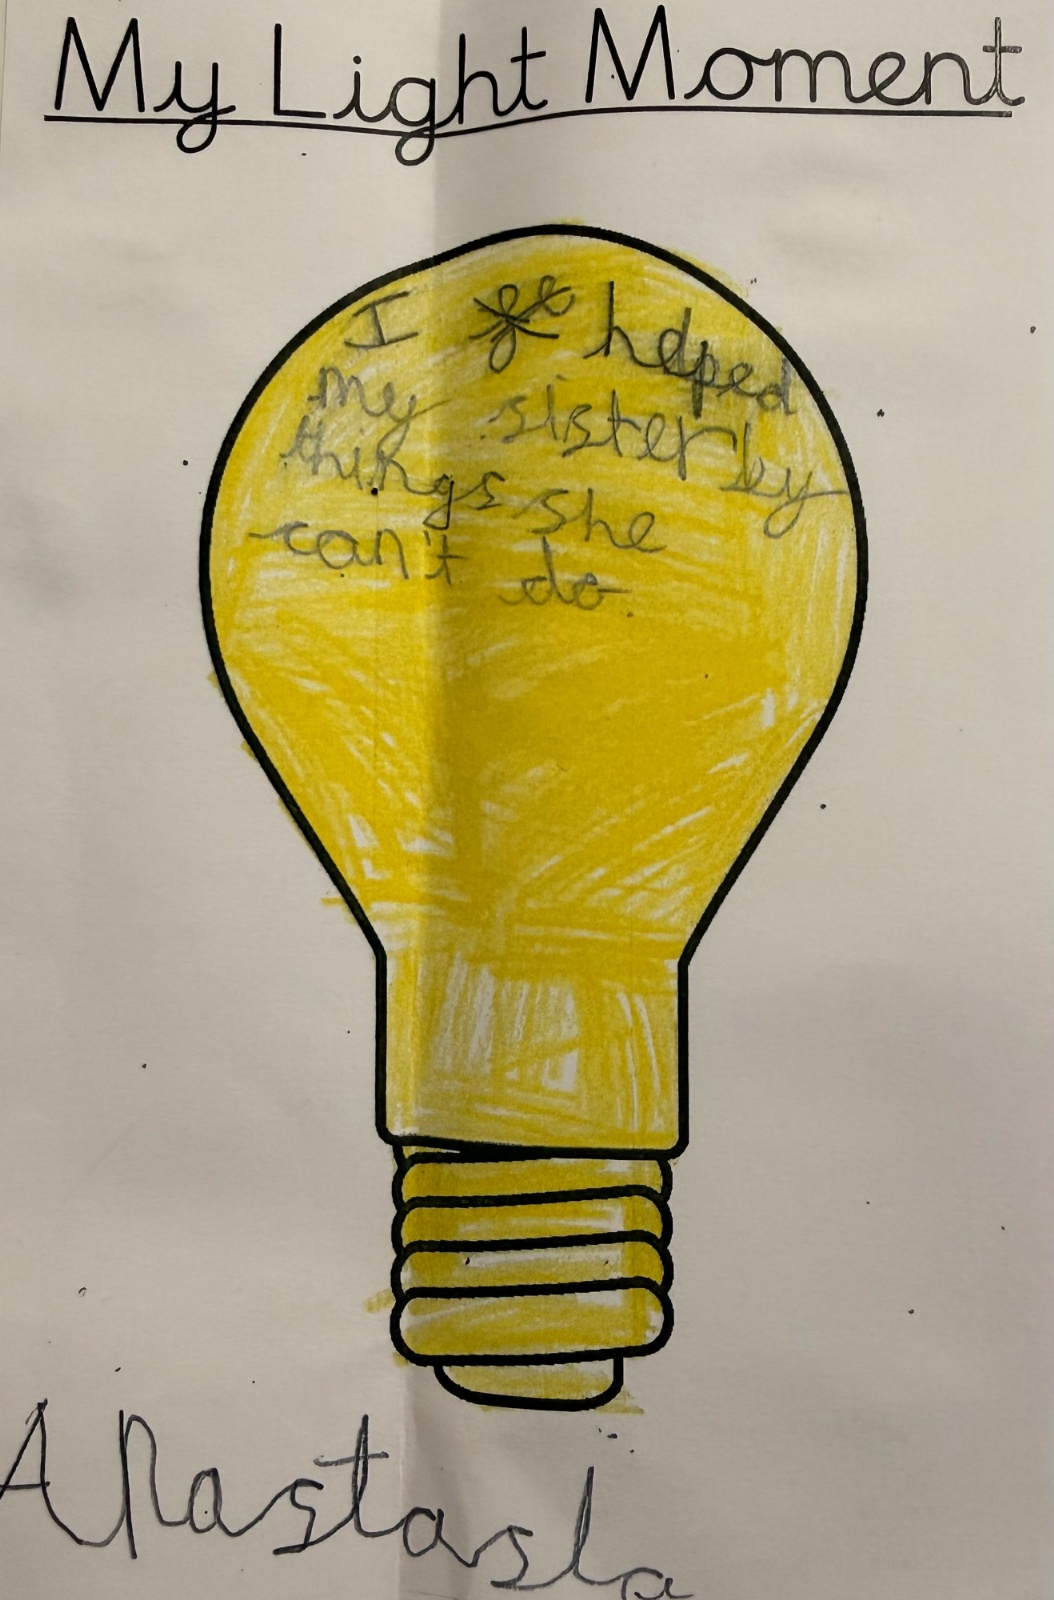 My Light Moment
I helped
my sister by
things she
can't do.
Anastasia